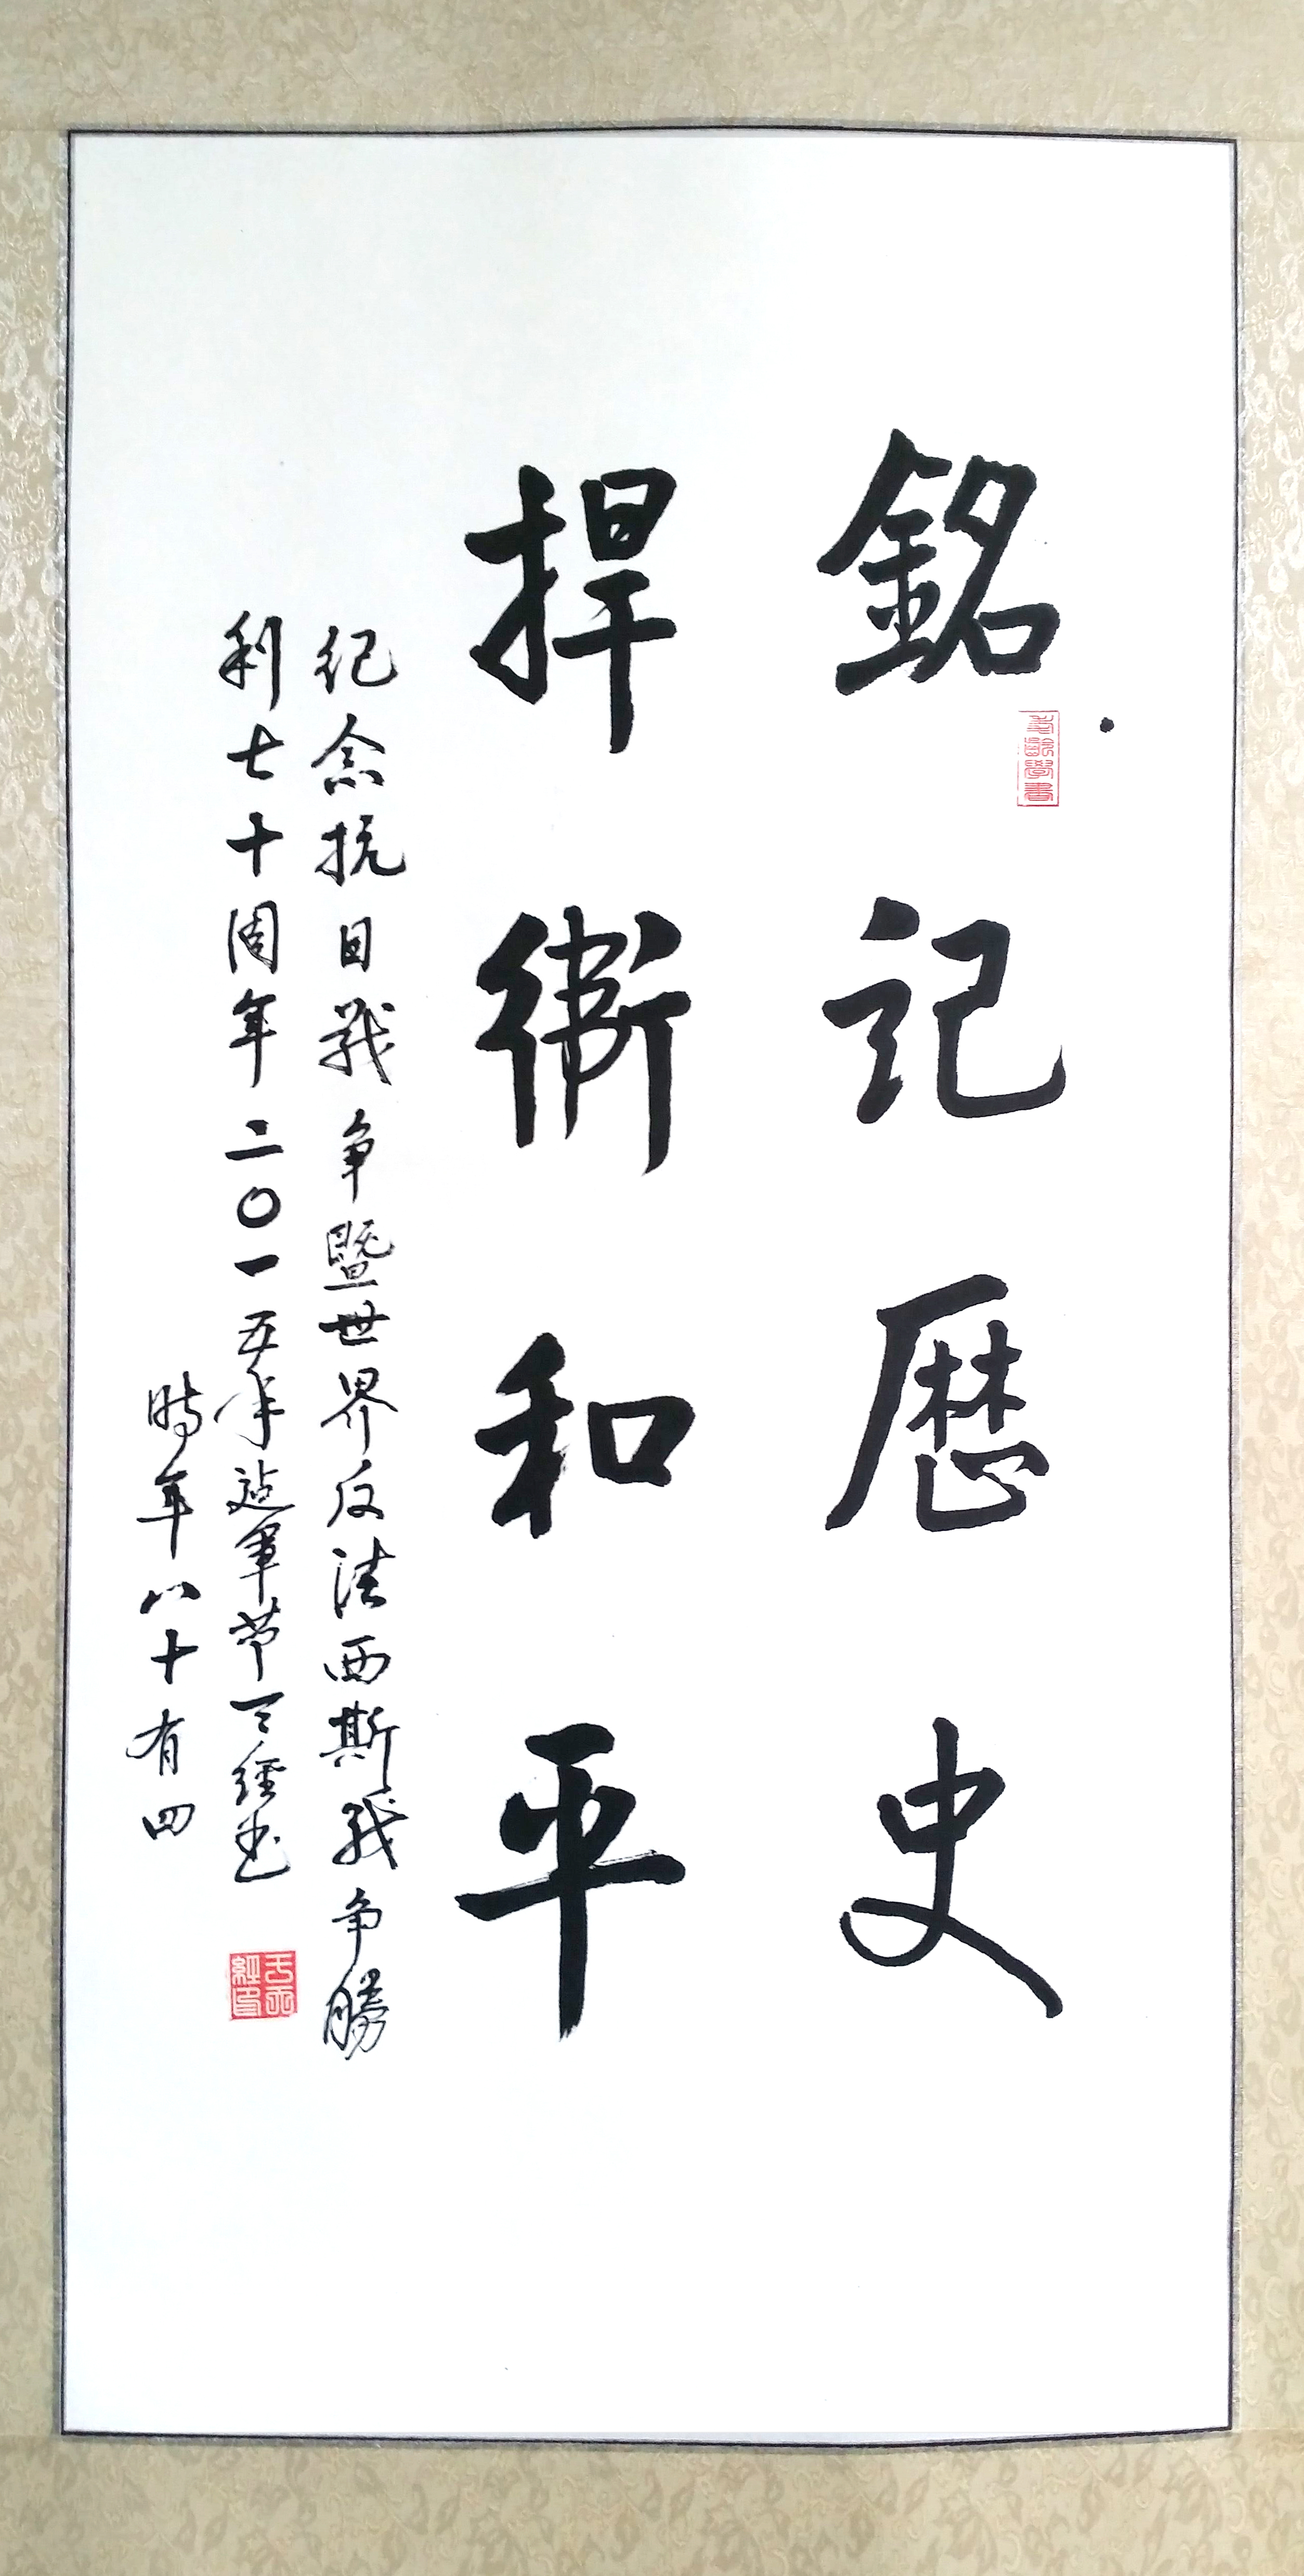 銘記歷史
捍衛和平
纪念抗日战争暨世界反法西斯战争勝
利七十周年二〇一五年建軍节天經书
時年八十有四